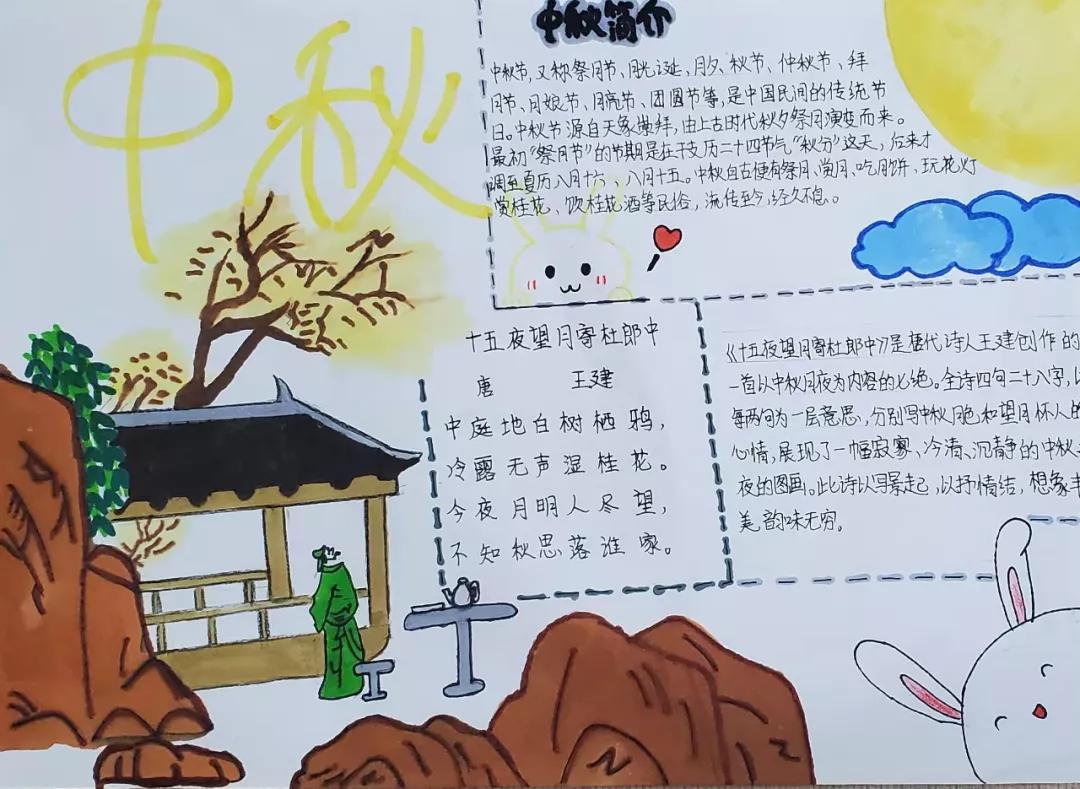 中秋
中秋简介
中秋节,又称祭月节、月光诞、月夕、秋节、仲秋节、拜
月节、月娘节、月亮节、团圆节等,是中国民间的传统节
日。中秋节源自天象崇拜,由上古时代秋夕祭月演变而来。
最初“祭月节”的节期是在干支历二十四节气“秋分”这天,后来才
调至夏历八月十六、八月十五。中秋自古便有祭月、赏月、吃月饼、玩花灯
赏桂花、饮桂花酒等民俗,流传至今,经久不息。
十五夜望月寄杜郎中
唐 王建
中庭地白树栖鸦,
冷露无声湿桂花。
今夜月明人尽望,
不知秋思落谁家。
《十五夜望月寄杜郎中》是唐代诗人王建创作的
一首以中秋月夜为内容的七绝。全诗四句二十八字,
每两句为一层意思,分别写中秋月色和望月怀人的
心情,展现了一幅寂寥、冷清、沉静的中秋
夜的图画。此诗以写景起,以抒情结,想象丰
美,韵味无穷。